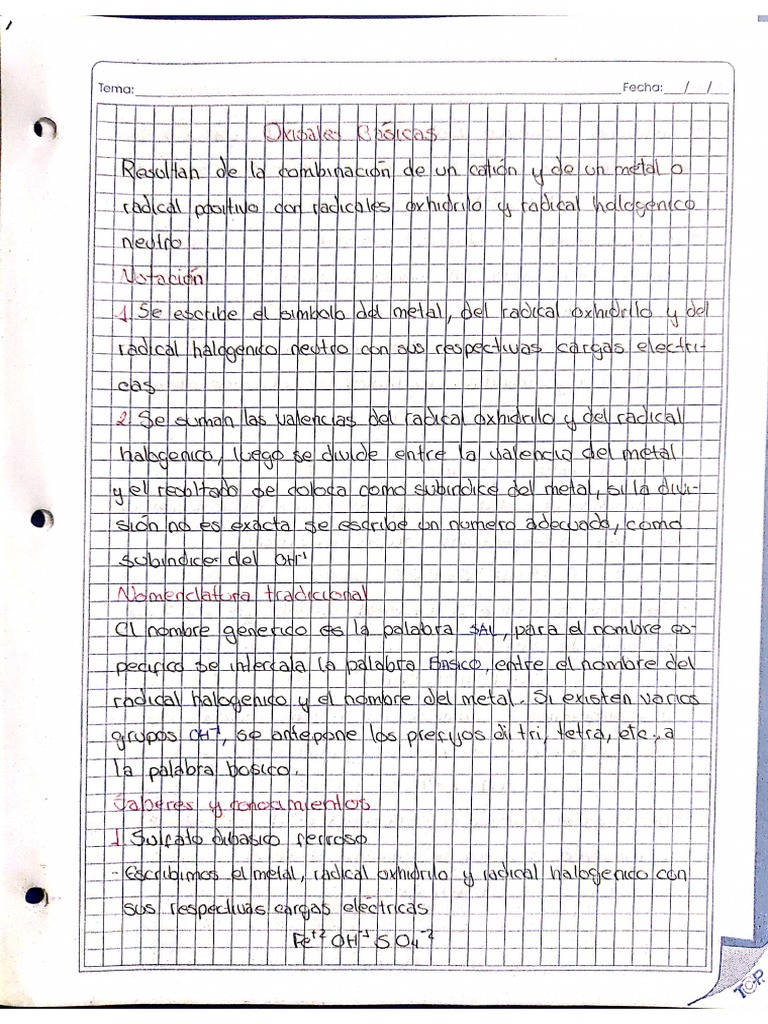 Tema:
Fecha: / /
Oxisales Básicas
Resultan de la combinación de un catión y de un metal o
radical positivo con radicales oxhidrilo y radical halogenico
neutro
Notación
1. Se escribe el simbolo del metal, del radical oxhidrilo y del
radical halogenico neutro con sus respectivas cargas electri-
cas
2. Se suman las valencias del radical oxhidrilo y del radical
halogenico, luego se divide entre la valencia del metal
y el resultado se coloca como subindice del metal, si la divi-
sión no es exacta se escribe un numero adecuado, como
subindice del OH⁻¹
Nomenclatura tradicional
El nombre generico es la palabra SAL, para el nombre es-
pecifico se intercala la palabra BASICO, entre el nombre del
radical halogenico y el nombre del metal. Si existen varios
grupos OH⁻¹, se antepone los prefijos di, tri, tetra, etc, a
la palabra basico.
Saberes y conocimientos
1. Sulfato dibasico ferroso
- Escribimos el metal, radical oxhidrilo y radical halogenico con
sus respectivas cargas eléctricas
Fe⁺² OH⁻¹ SO₄⁻²
TOP